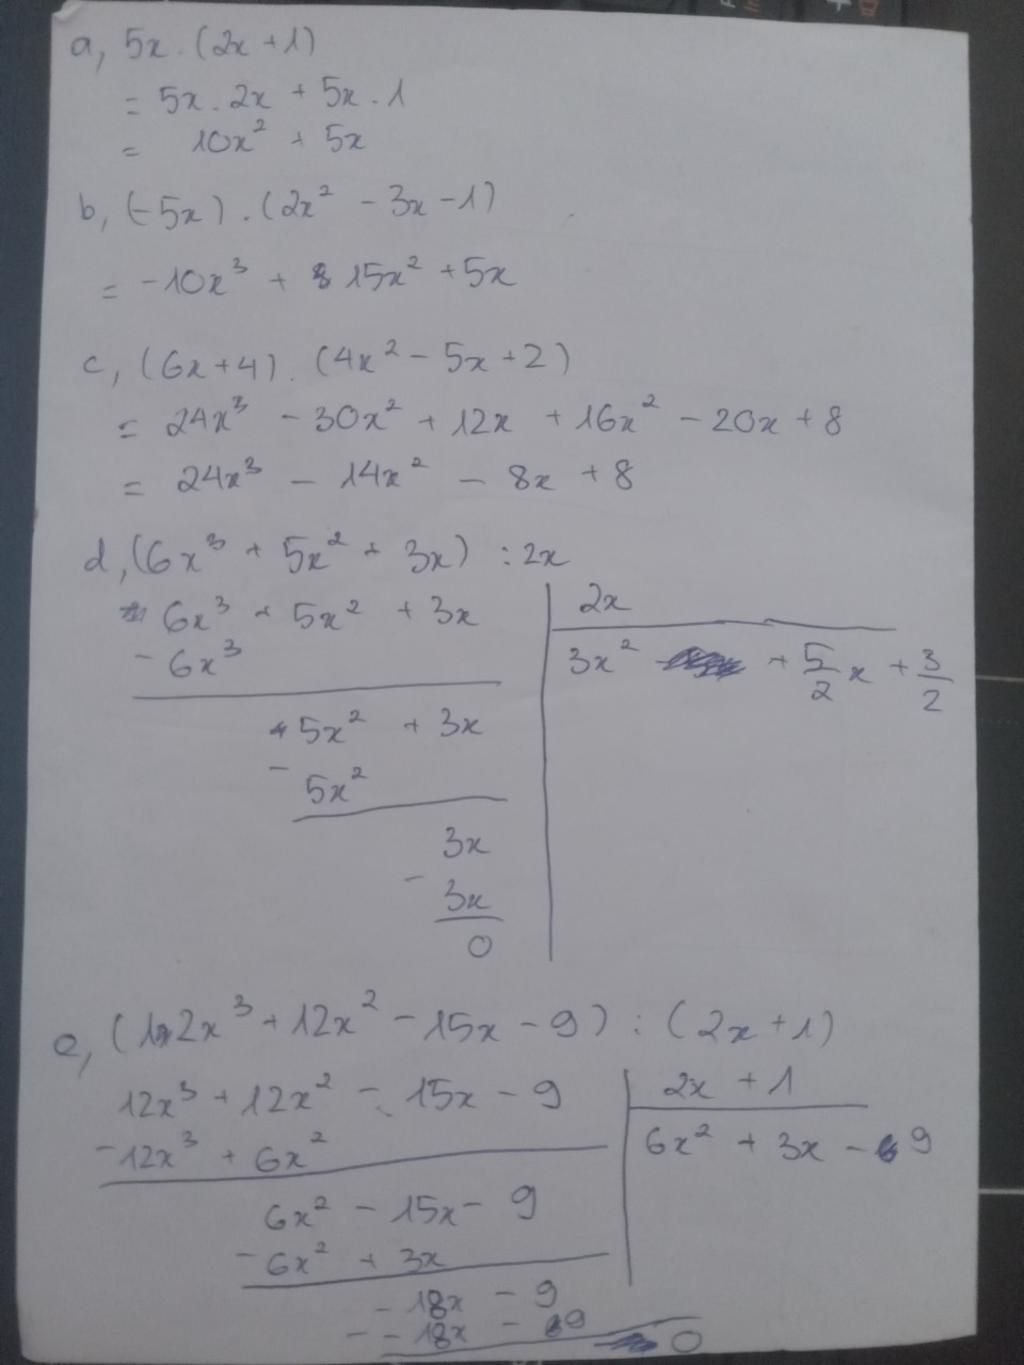 a, 5x . (2x + 1)
= 5x . 2x + 5x . 1
= 10x² + 5x
b, (-5x) . (2x² - 3x - 1)
= -10x³ + 15x² + 5x
c, (6x + 4) . (4x² - 5x + 2)
= 24x³ - 30x² + 12x + 16x² - 20x + 8
= 24x³ - 14x² - 8x + 8
d, (6x³ + 5x² + 3x) : 2x
6x³ + 5x² + 3x
2x
- 6x³
3x² + 5/2 x + 3/2
+ 5x² + 3x
- 5x²
3x
- 3x
0
e, (12x³ + 12x² - 15x - 9) : (2x + 1)
12x³ + 12x² - 15x - 9
2x + 1
- 12x³ + 6x²
6x² + 3x - 9
6x² - 15x - 9
- 6x² + 3x
- 18x - 9
- - 18x - 9
0